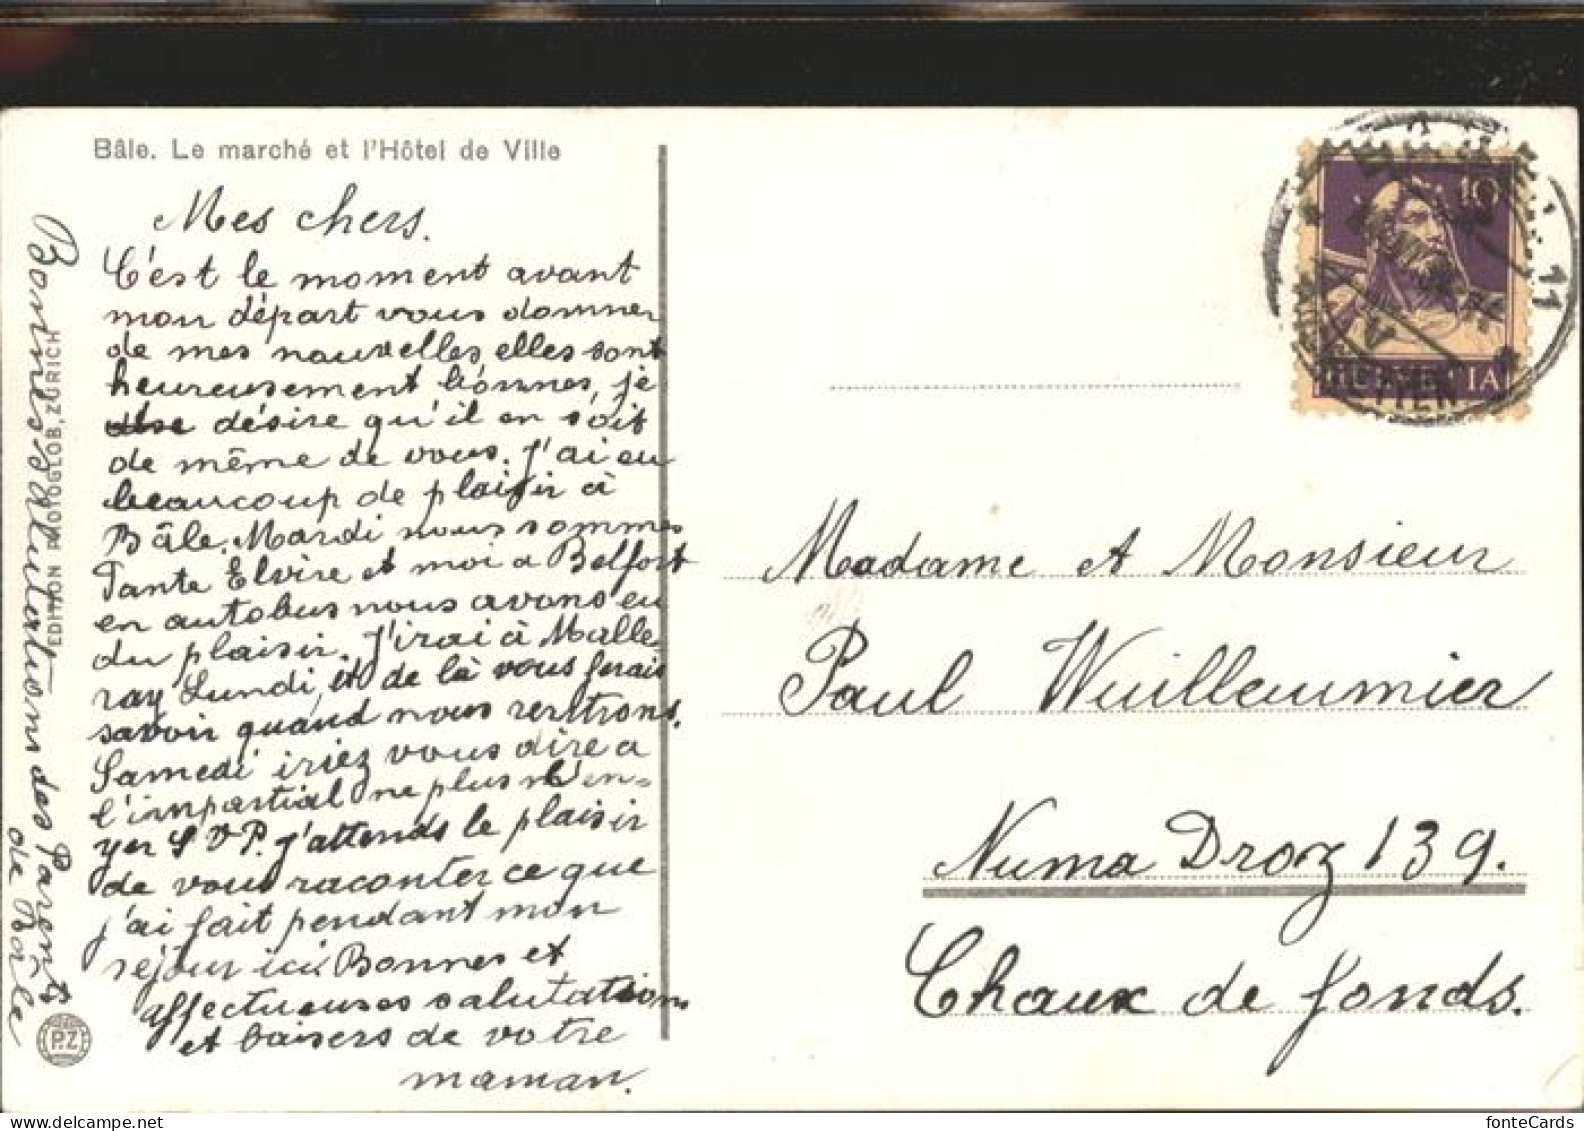 Bâle. Le marché et l'Hôtel de Ville
Mes chers.
C'est le moment avant
mon départ vous donner
de mes nouvelles, elles sont
heureusement bonnes, je
désire qu'il en soit
de même de vous. J'ai eu
beaucoup de plaisir à
Bâle. Mardi nous sommes
Tante Elvire et moi a Belfort
en autobus nous avons eu
du plaisir. J'irai à Malle
ray Lundi, et de là vous ferais
savoir quand nous rentrons.
Samedi iriez vous dire a
l'impartial ne plus m'en=
yer S V P. j'attends le plaisir
de vous raconter ce que
j'ai fait pendant mon
séjour ici Bonnes et
affectueuses salutations
et baisers de votre
maman.
Bonnes salutations des Parents
de Bâle
EDITION PHOTOGLOB, ZÜRICH
P.Z
10
HELVETIA
11
Madame et Monsieur
Paul Wuilleumier
Numa Droz 139.
Chaux de fonds.
fonteCards